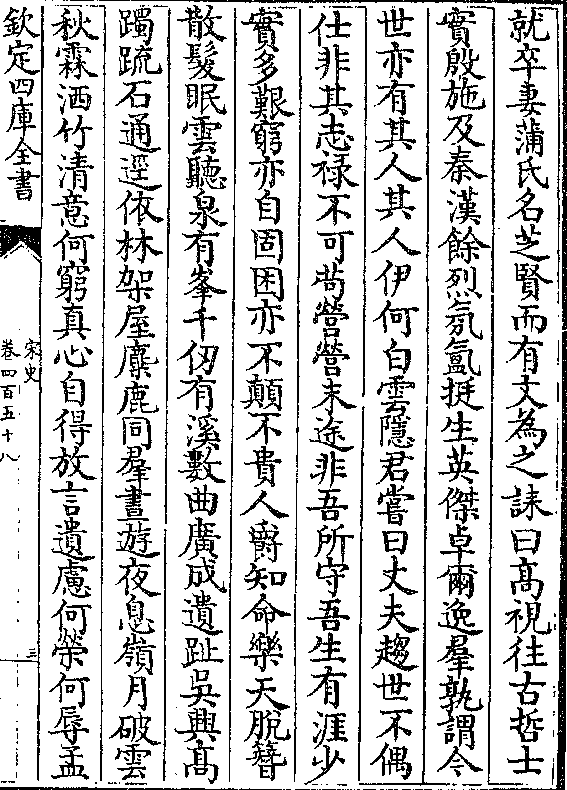 就卒妻蒲氏名芝賢而有文為之誄曰髙視往古哲士
實殷施及秦漢餘烈氛氳挺生英傑卓爾逸羣孰謂今
世亦有其人其人伊何白雲隱君嘗曰丈夫趨世不偶
仕非其志禄不可茍營營末途非吾所守吾生有涯少
實多艱窮亦自固困亦不顛不貴人爵知命樂天脱簪
散髮眠雲聽泉有峯千仞有溪數曲廣成遺趾吳興髙
躅疏石通逕依林架屋麋鹿同羣晝遊夜息嶺月破雲
秋霖洒竹清意何窮真心自得放言遺慮何榮何辱孟
欽定四庫全書
宋史
卷四百五十八
三